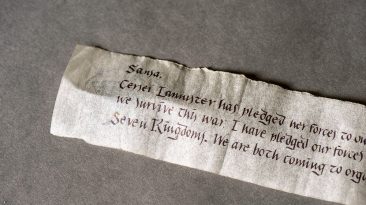 Sansa.
Cersei Lannister has pledged her forces to ou
we survive this war. I have pledged our forces
Seven Kingdoms. We are both coming to orga